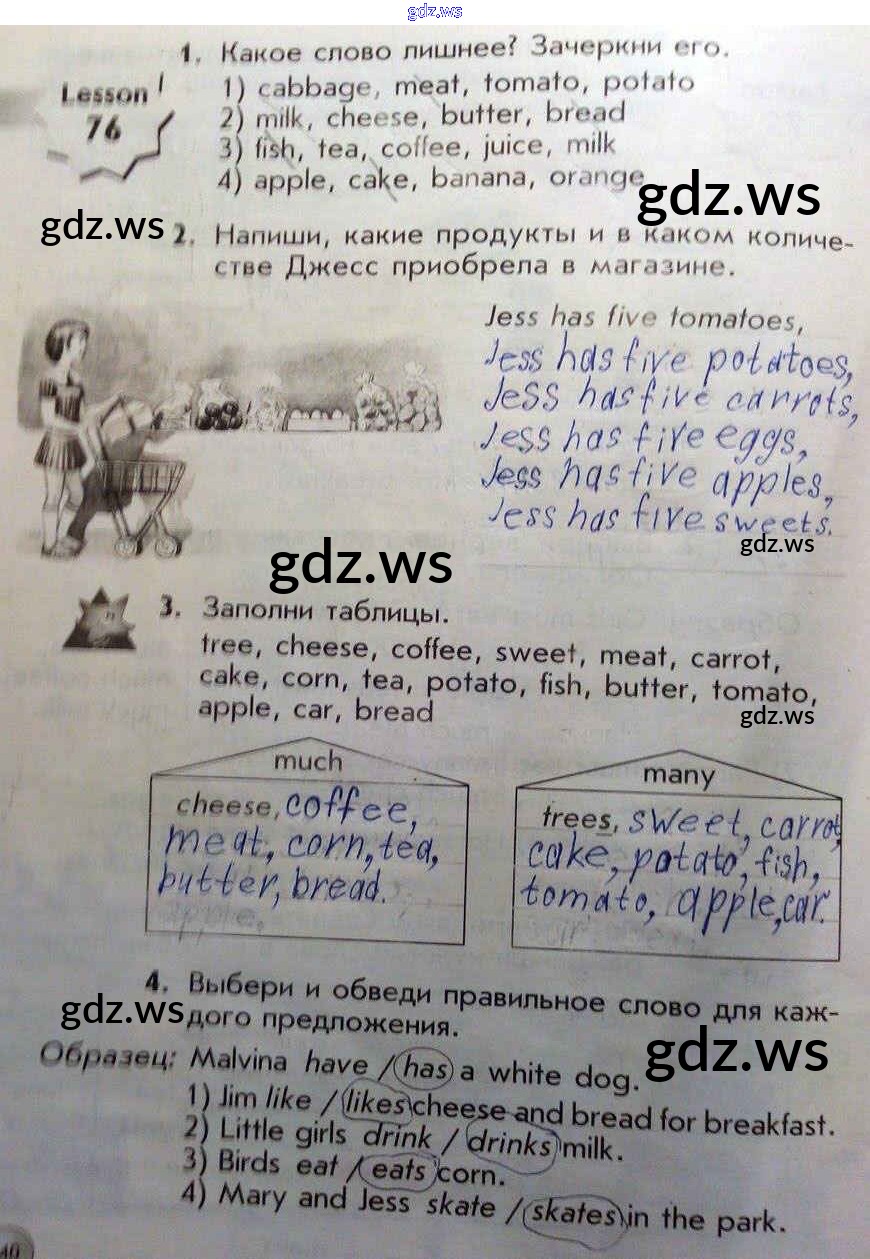 gdz.ws
1. Какое слово лишнее? Зачеркни его.
Lesson
76
1) cabbage, meat, tomato, potato
2) milk, cheese, butter, bread
3) fish, tea, coffee, juice, milk
4) apple, cake, banana, orange
gdz.ws
gdz.ws
2. Напиши, какие продукты и в каком количе-
стве Джесс приобрела в магазине.
Jess has five tomatoes,
Jess has five potatoes,
Jess has five carrots,
Jess has five eggs,
Jess has five apples,
Jess has five sweets.
gdz.ws
gdz.ws
3. Заполни таблицы.
tree, cheese, coffee, sweet, meat, carrot,
cake, corn, tea, potato, fish, butter, tomato,
apple, car, bread
gdz.ws
much
cheese, coffee,
meat, corn, tea,
butter, bread.
many
trees, sweet, carrot,
cake, potato, fish,
tomato, apple, car.
4. Выбери и обведи правильное слово для каж-
дого предложения.
gdz.ws
gdz.ws
Образец: Malvina have / has a white dog.
1) Jim like / likes cheese and bread for breakfast.
2) Little girls drink / drinks milk.
3) Birds eat / eats corn.
4) Mary and Jess skate / skates in the park.
40